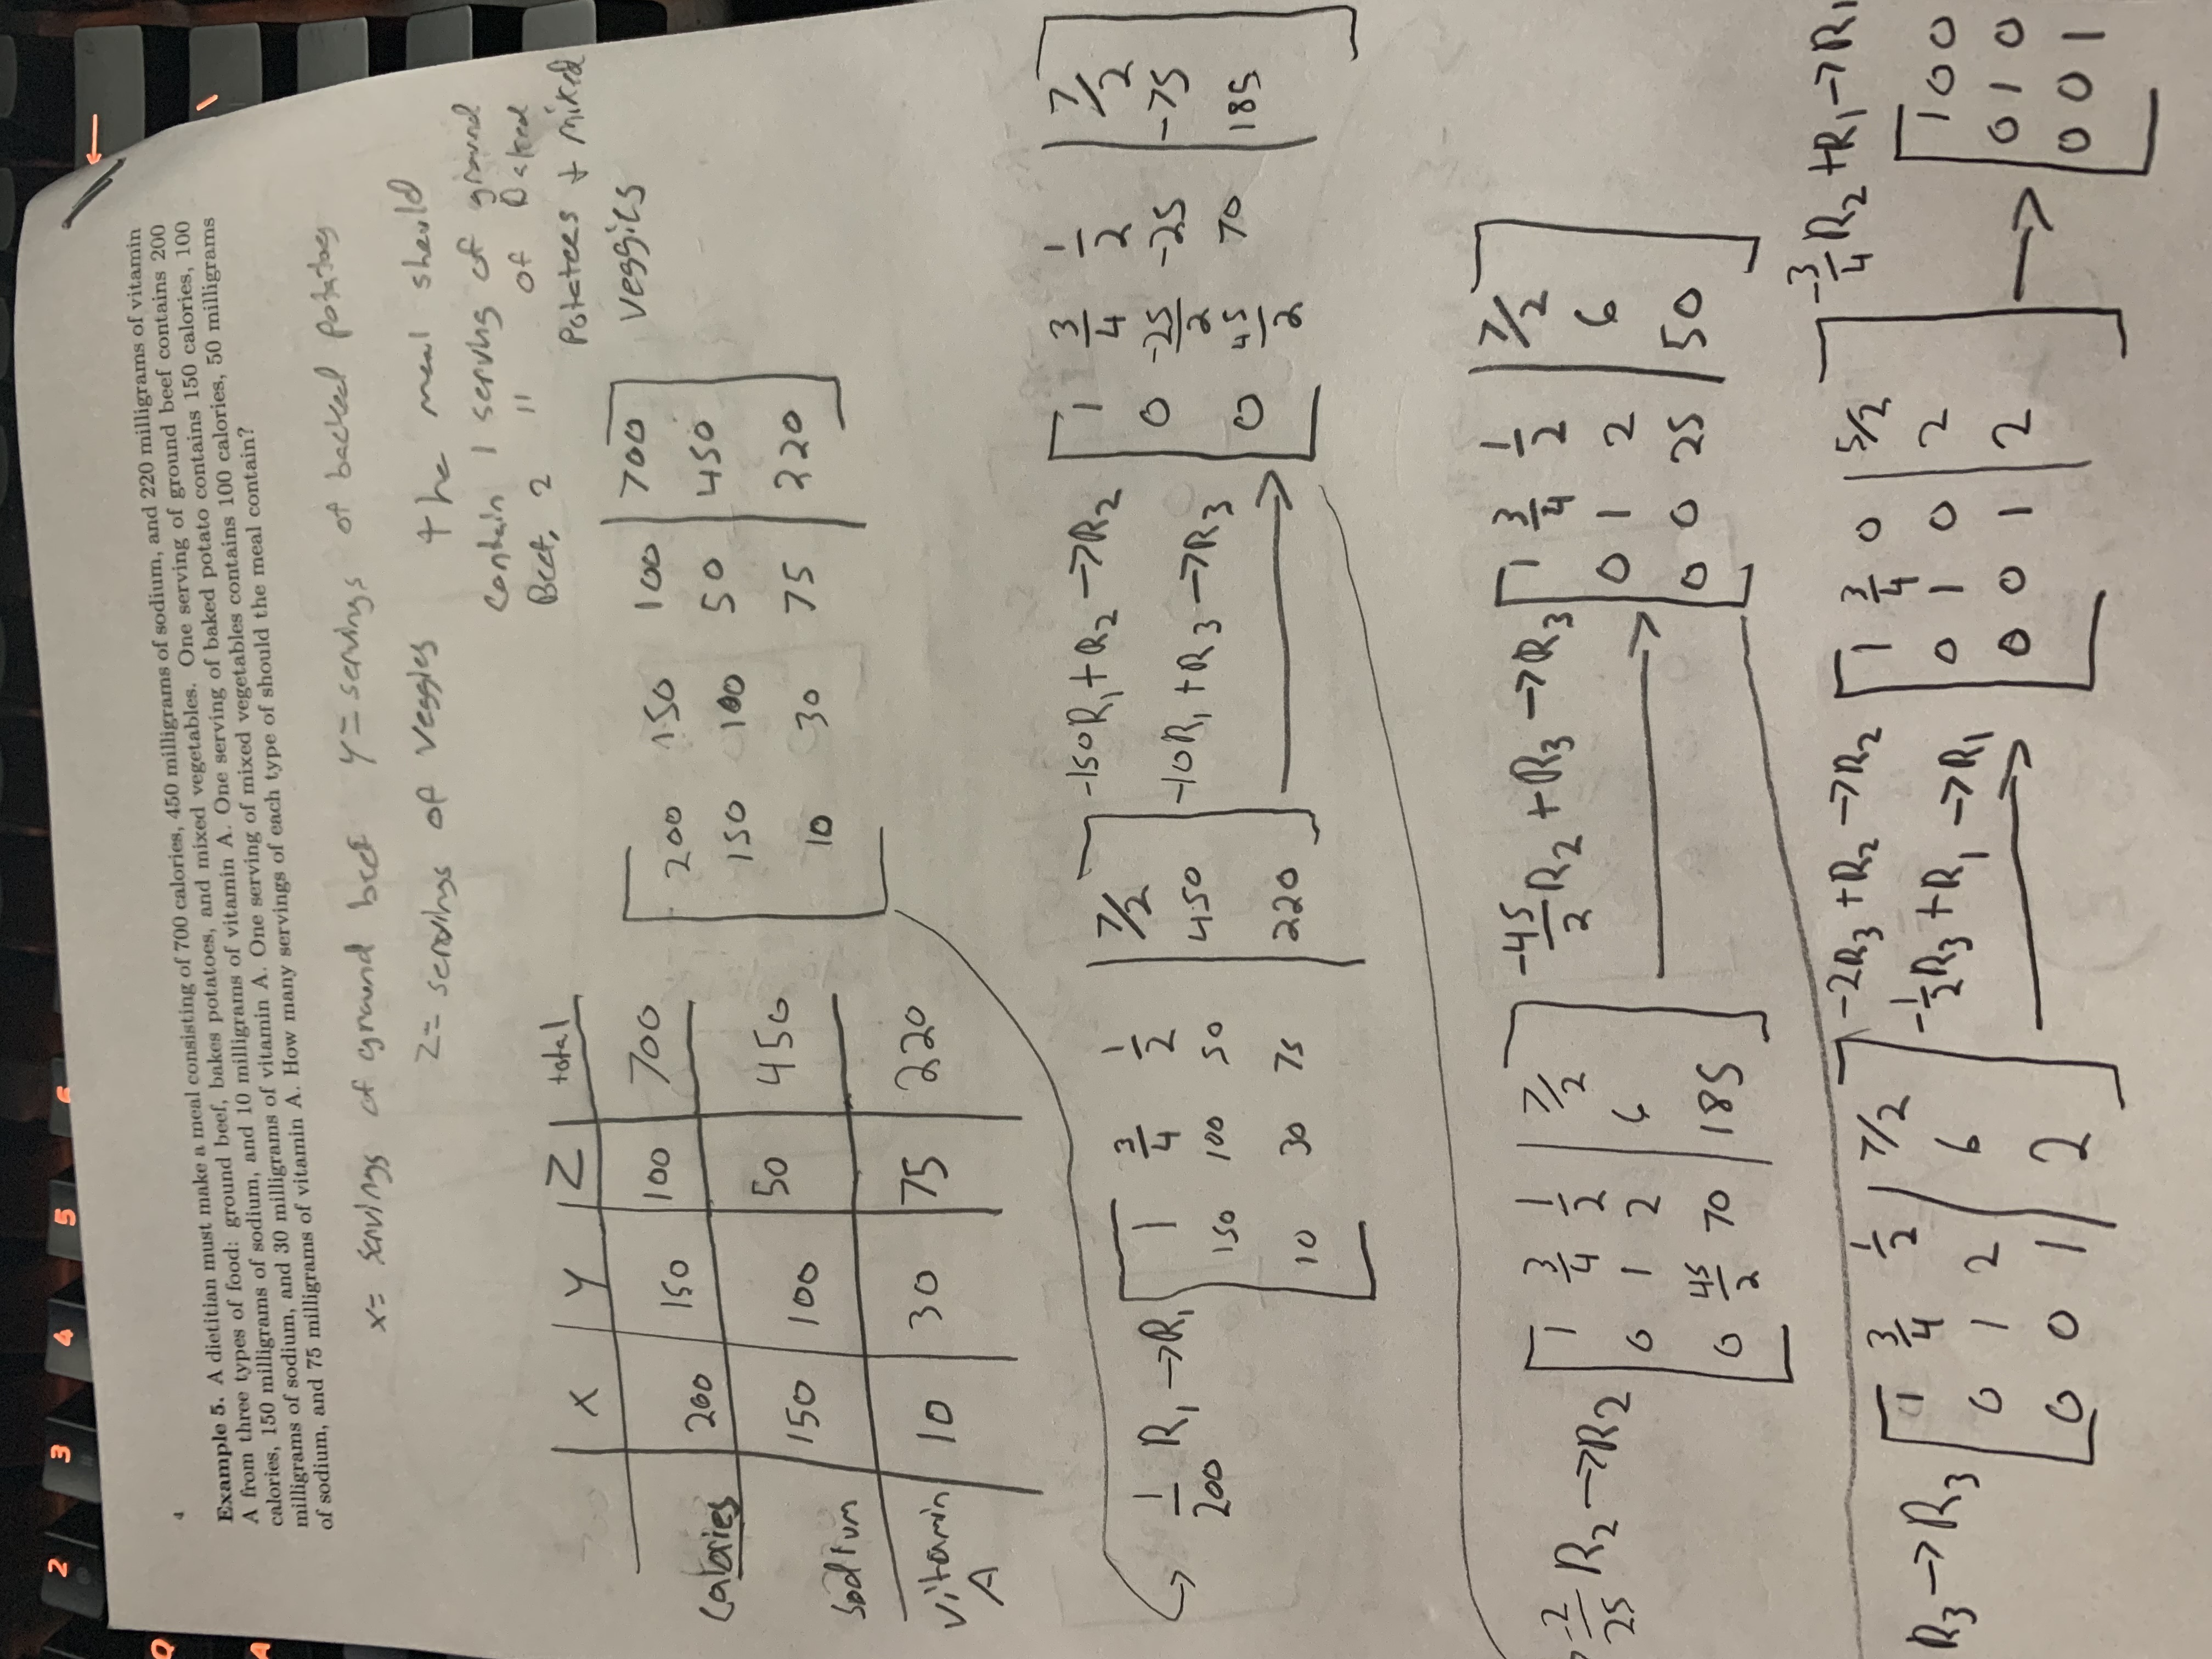 4
Example 5. A dietitian must make a meal consisting of 700 calories, 450 milligrams of sodium, and 220 milligrams of vitamin
A from three types of food: ground beef, bakes potatoes, and mixed vegetables. One serving of ground beef contains 200
calories, 150 milligrams of sodium, and 10 milligrams of vitamin A. One serving of baked potato contains 150 calories, 100
milligrams of sodium, and 30 milligrams of vitamin A. One serving of mixed vegetables contains 100 calories, 50 milligrams
of sodium, and 75 milligrams of vitamin A. How many servings of each type of should the meal contain?
x= servings of ground beef y= servings of backed potatoes
z= servings of veggies
the meal should
contain 1 serving of ground
Beef, 2 " of Baked
Potatoes + mixed
veggies
X Y Z total
Calories 200 150 100 700
Sodium 150 100 50 450
Vitamin A 10 30 75 220
[200 150 100 | 700
150 100 50 | 450
10 30 75 | 220]
1/200 R1→R1
[1 3/4 1/2 | 7/2
150 100 50 | 450
10 30 75 | 220]
-150R1+R2→R2
-10R1+R3→R3
[1 3/4 1/2 | 7/2
0 -25/2 -25 | -75
0 45/2 70 | 185]
-2/25 R2→R2
[1 3/4 1/2 | 7/2
0 1 2 | 6
0 45/2 70 | 185]
-45/2 R2+R3→R3
[1 3/4 1/2 | 7/2
0 1 2 | 6
0 0 25 | 50]
R3→R3
[1 3/4 1/2 | 7/2
0 1 2 | 6
0 0 1 | 2]
-2R3+R2→R2
-1/2R3+R1→R1
[1 3/4 0 | 5/2
0 1 0 | 2
0 0 1 | 2]
-3/4R2+R1→R1
[1 0 0
0 1 0
0 0 1
2
3
4
5
6
Q
A